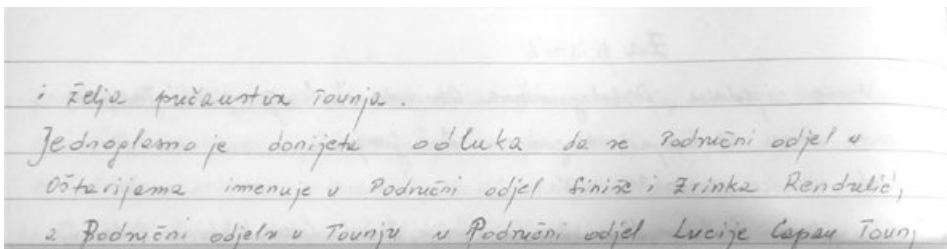 i želja pučanstva Tounja.
Jednoglasno je donijeta odluka da se Područni odjel u
Oštarijama imenuje u Područni odjel Siniše i Zrinka Rendulić,
a Područni odjela u Tounju u Područni odjel Lucije Capan Tounj